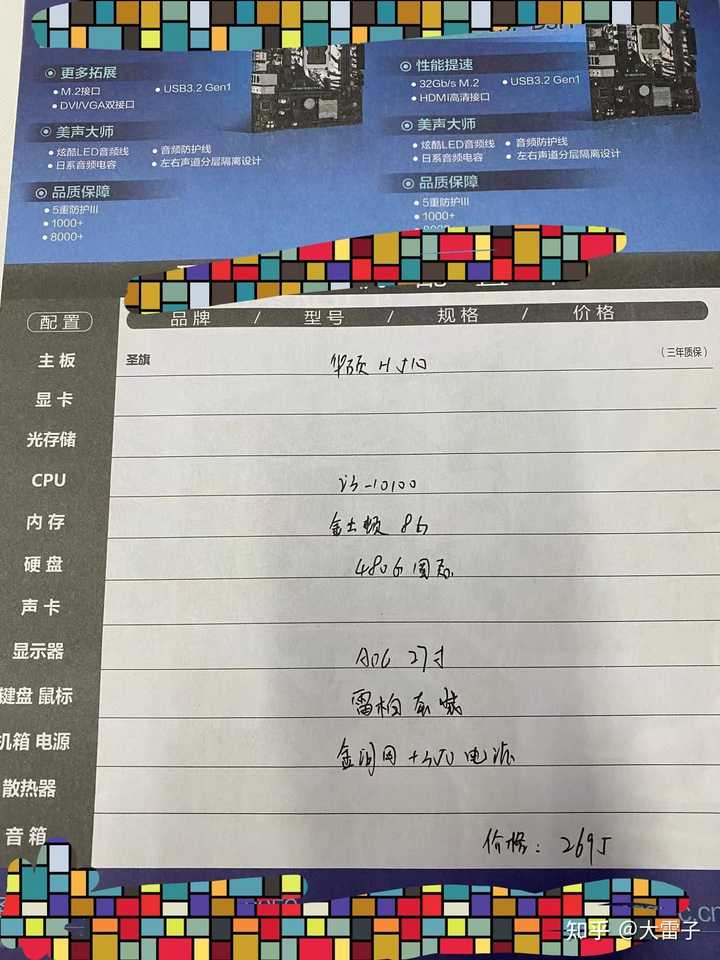 更多拓展
M.2接口
USB3.2 Gen1
DVI/VGA双接口
美声大师
炫酷LED音频线
音频防护线
日系音频电容
左右声道分层隔离设计
品质保障
5重防护III
1000+
8000+
性能提速
32Gb/s M.2
USB3.2 Gen1
HDMI高清接口
美声大师
炫酷LED音频线
音频防护线
日系音频电容
左右声道分层隔离设计
品质保障
5重防护III
1000+
配置
品牌 / 型号 / 规格 / 价格
主板 圣旗 华硕 H510 (三年质保)
显卡
光存储
CPU i3-10100
内存 金士顿 8G
硬盘 480G 固态
声卡
显示器 AOC 27寸
键盘 鼠标 雷柏 套装
机箱 电源 电源
散热器
音箱
价格: 2695
知乎 @大雷子